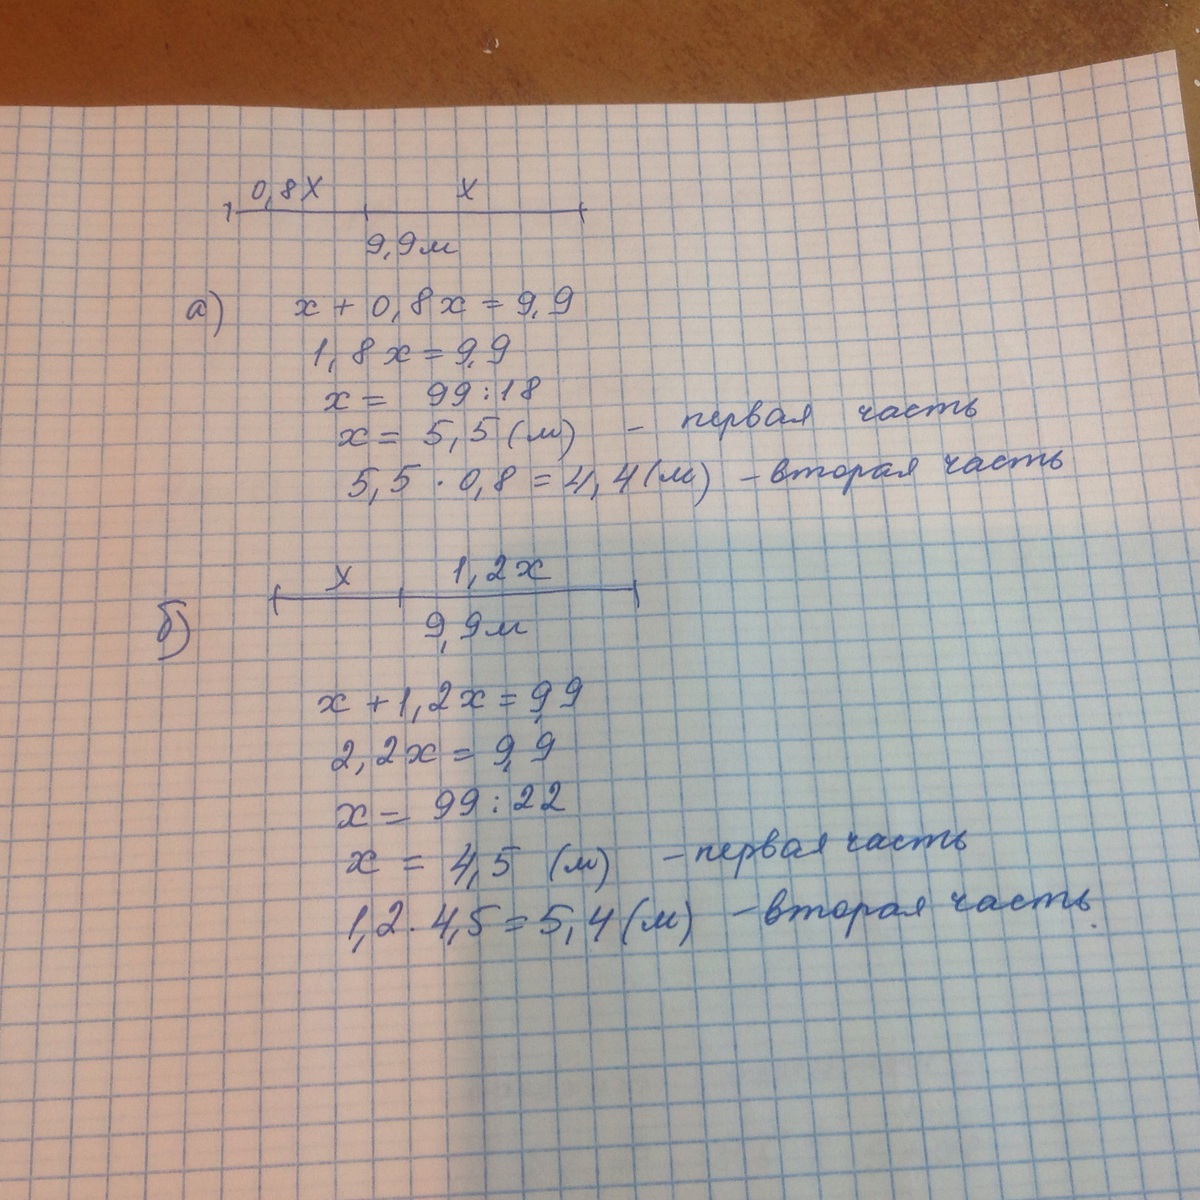 0,8х х
9,9м
а) х + 0,8х = 9,9
1,8х = 9,9
х = 99:18
х = 5,5 (м) - первая часть
5,5 · 0,8 = 4,4 (м) - вторая часть
х 1,2х
б)
9,9м
х + 1,2х = 9,9
2,2х = 9,9
х = 99:22
х = 4,5 (м) - первая часть
1,2 · 4,5 = 5,4 (м) - вторая часть.